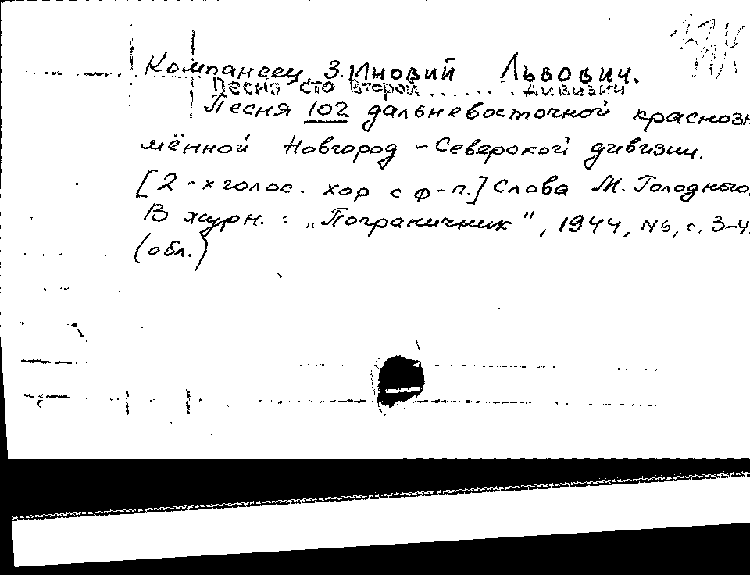 Компанеец Зиновий Львович.
Песня сто второй ....... дивизии
Песня 102 дальневосточной краснозн
мённой Новгород-Северской дивизии.
[2-х голос. хор с ф-п.] Слова М. Голодного.
В журн.: „Пограничник", 1944, №6, с. 3-4
(обл.)